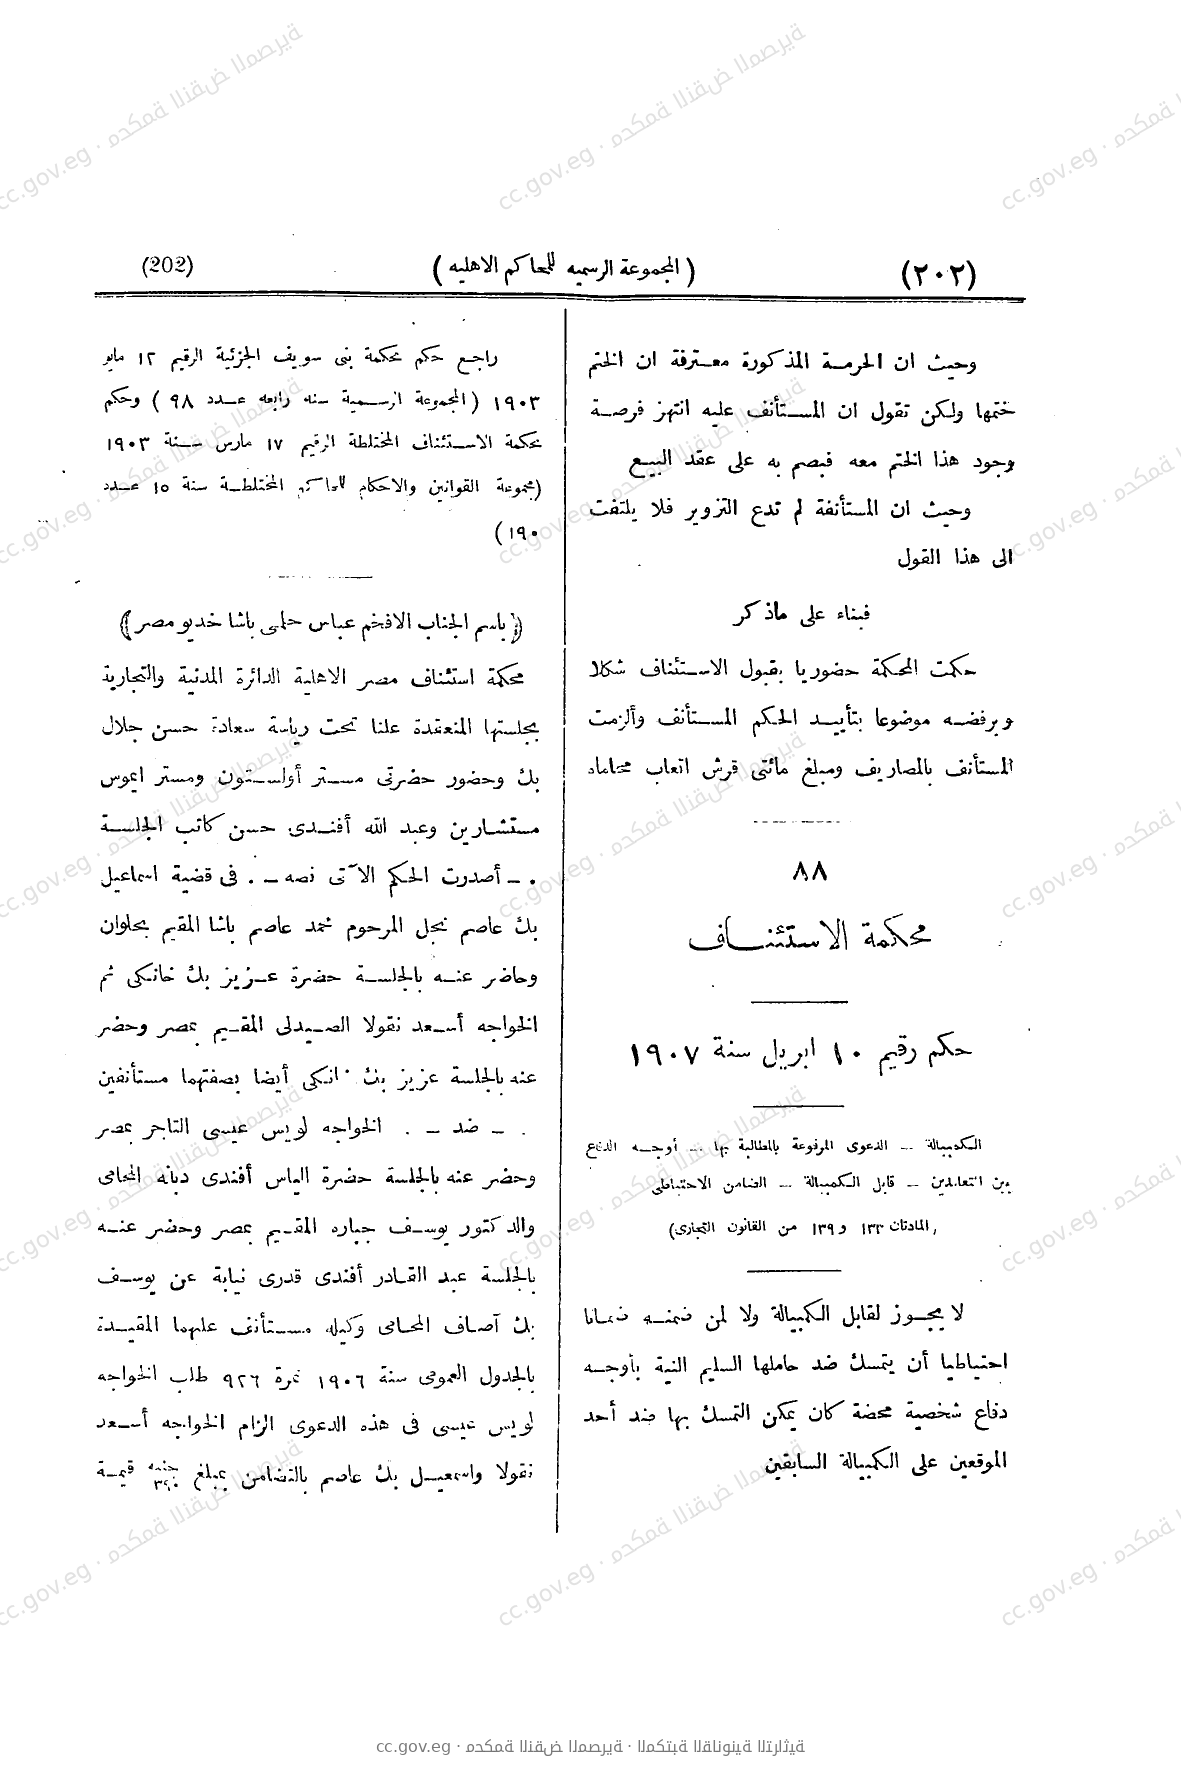 (٢٠٢) ( المجموعة الرسميه للمحاكم الاهليه ) (202)
وحيث ان الحرمة المذكورة معترفة ان الختم
ختمها ولكن تقول ان المستأنف عليه انتهز فرصة
وجود هذا الختم معه فبصم به على عقد البيع
وحيث ان المستأنفة لم تدع التزوير فلا يلتفت
الى هذا القول
فبناء على ماذكر
حكمت المحكمة حضوريا بقبول الاستئناف شكلا
وبرفضه موضوعا بتأييد الحكم المستأنف وألزمت
المستأنف بالمصاريف ومبلغ مائتى قرش اتعاب محاماه
٨٨
محكمة الاستئناف
حكم رقيم ١٠ ابريل سنة ١٩٠٧
الكمبيالة – الدعوى المرفوعة بالمطالبة بها – أوجه الدفاع
بين المتعاقدين – قابل الكمبيالة – الضامن الاحتياطى
(المادتان ١٣٣ و ١٣٩ من القانون التجارى)
لا يجوز لقابل الكمبيالة ولا لمن ضمنه ضمانا
احتياطيا أن يتمسك ضد حاملها السليم النية بأوجه
دفاع شخصية محضة كان يمكن التمسك بها ضد أحد
الموقعين على الكمبيالة السابقين
راجع حكم محكمة بنى سويف الجزئية الرقيم ١٢ مايو
١٩٠٣ (المجموعة الرسمية سنه رابعه عدد ٩٨ ) وحكم
محكمة الاستئناف المختلطة الرقيم ١٧ مارس سنة ١٩٠٣
(مجموعة القوانين والاحكام للمحاكم المختلطة سنة ١٥ عدد
١٩٠)
(باسم الجناب الافخم عباس حلمى باشا خديو مصر)
محكمة استئناف مصر الاهلية الدائرة المدنية والتجارية
بجلستها المنعقدة علنا تحت رياسة سعادة حسن جلال
بك وحضور حضرتى مستر أولستون ومستر ايموس
مستشارين وعبد الله أفندى حسن كاتب الجلسة
. – أصدرت الحكم الآتى نصه – . فى قضية اسماعيل
بك عاصم نجل المرحوم محمد عاصم باشا المقيم بحلوان
وحاضر عنه بالجلسة حضرة عزيز بك خانكى ثم
الخواجه أسعد نقولا الصيدلى المقيم بمصر وحضر
عنه بالجلسة عزيز بك خانكى أيضا بصفتهما مستأنفين
. – ضد – . الخواجه لويس عيسى التاجر بمصر
وحضر عنه بالجلسة حضرة الياس أفندى دبانه المحامى
والدكتور يوسف جباره المقيم بمصر وحضر عنه
بالجلسة عبد القادر أفندى قدرى نيابة عن يوسف
بك آصاف المحامى وكيله مستأنف عليهما المقيدة
بالجدول العمومى سنة ١٩٠٦ نمرة ٩٢٦ طلب الخواجه
لويس عيسى فى هذه الدعوى الزام الخواجه أسعد
نقولا واسمعيل بك عاصم بالتضامن بمبلغ جنيه قيمة
cc.gov.eg · محكمة النقض المصرية · المكتبة القانونية التراثية